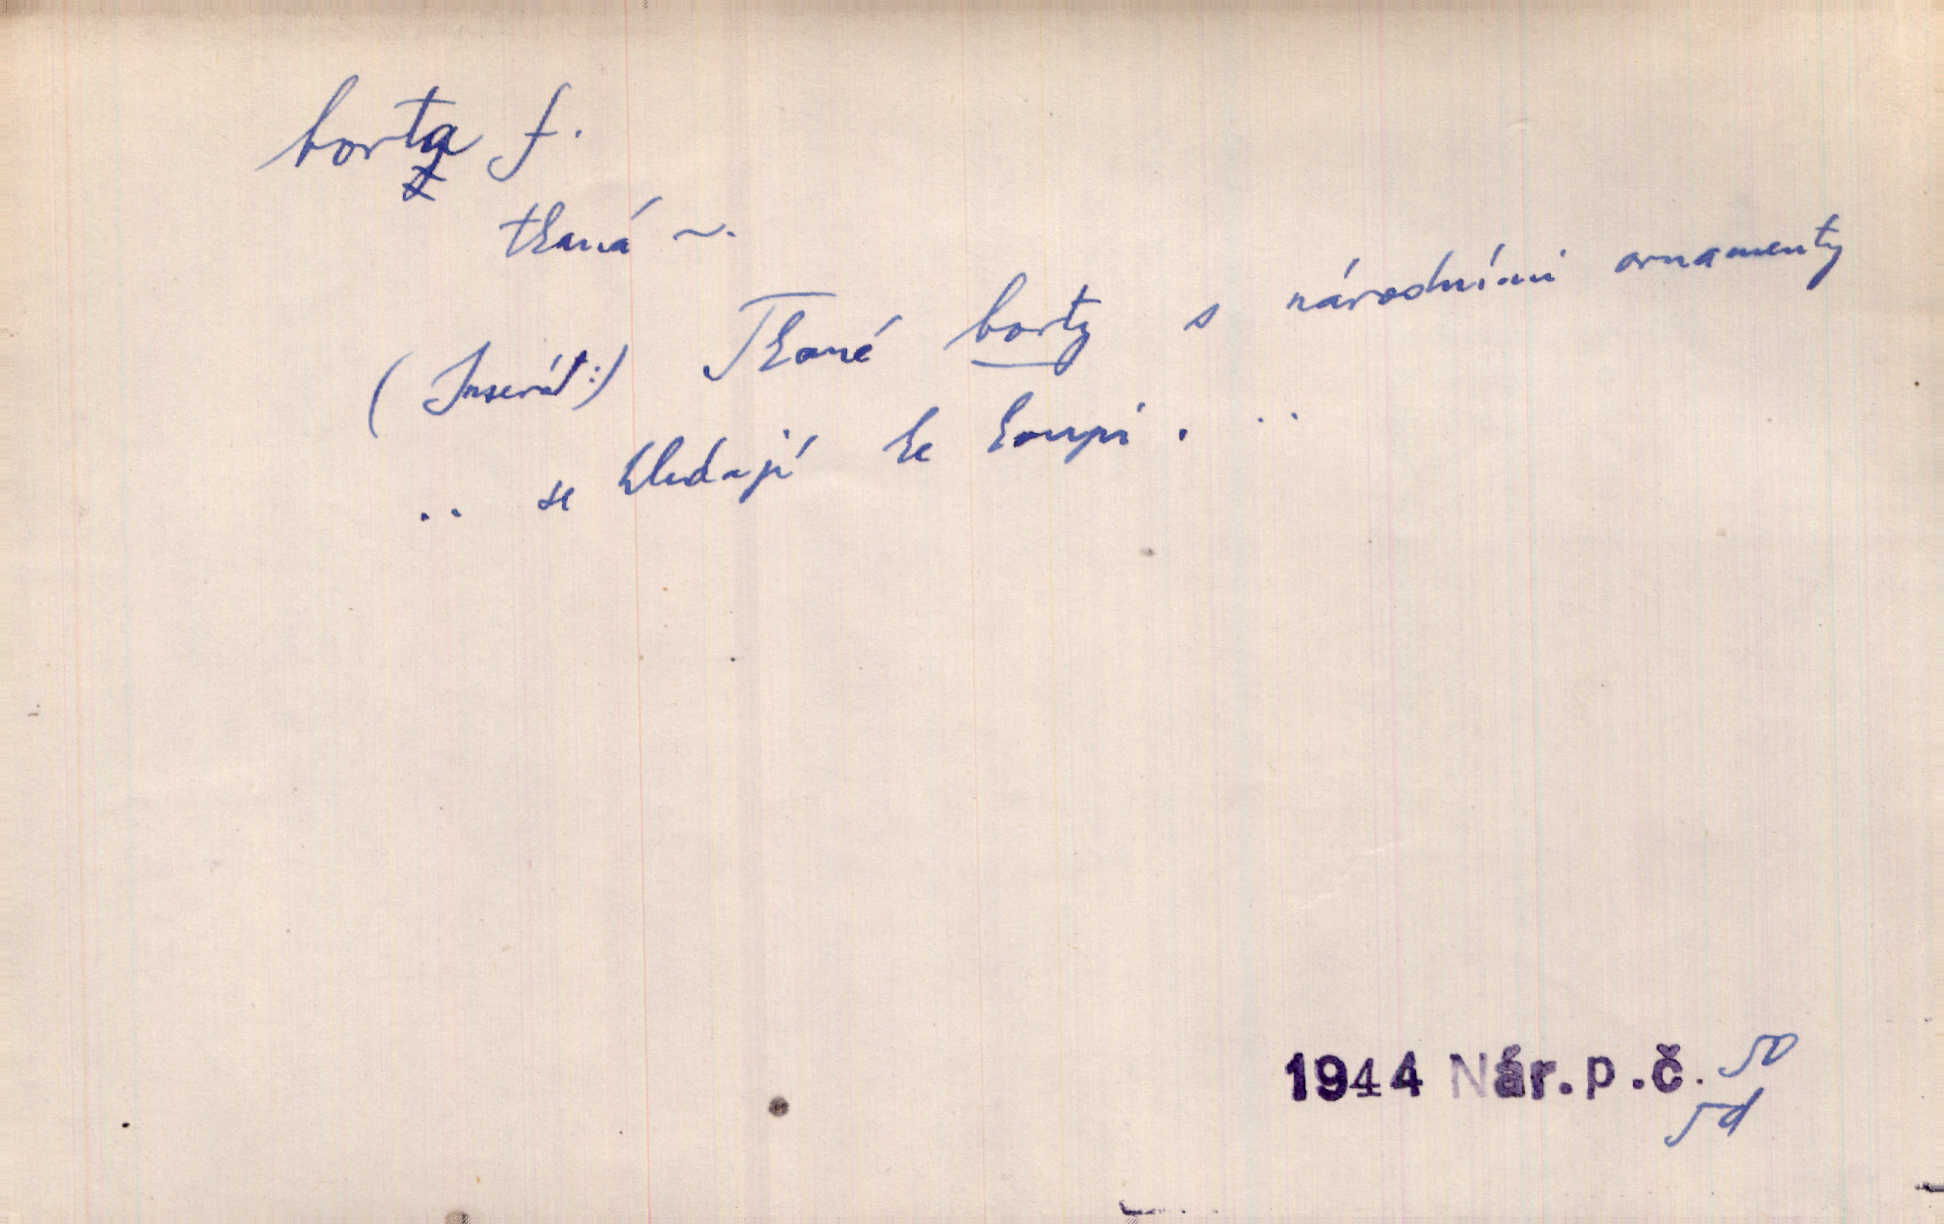 borta f.
tkaná ~.
(Inserát:) Tkané borty s národními ornamenty
.. se hledají ke koupi. ..
1944 Nár. p. č. 50
5d